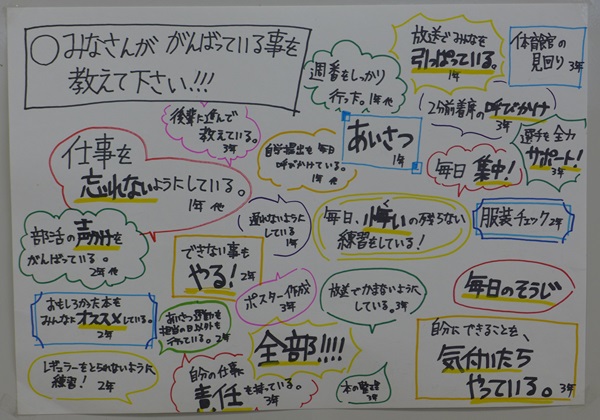 ○みなさんが がんばっている事を
教えて下さい!!!
放送でみんなを
引っぱっている。
1年
体育館の
見回り 3年
週番をしっかり
行った。1年 他
後輩に進んで
教えている。
3年
2分前着席の呼びかけ
3年
選手を全力
サポート!
3年
あいさつ
1年
自学提出を毎日
呼びかけている。
1年
毎日 集中!
3年
仕事を
忘れないようにしている。
1年 他
遅れないように
している 1年
毎日、悔いの残らない
練習をしている!
服装チェック 2年
部活の声かけを
がんばっている。
2年 他
できない事も
やる! 2年
ポスター作成
3年
放送でかまないように
している。3年
毎日のそうじ
おもしろかった本を
みんなにオススメしている。
2年
あいさつ運動を
担当の日以外も
行っている。2年
全部!!!!
自分にできることを、
気付いたら
やっている。3年
レギュラーをとられないように
練習! 2年
自分の仕事に
責任を持っている。
3年
本の整理
3年